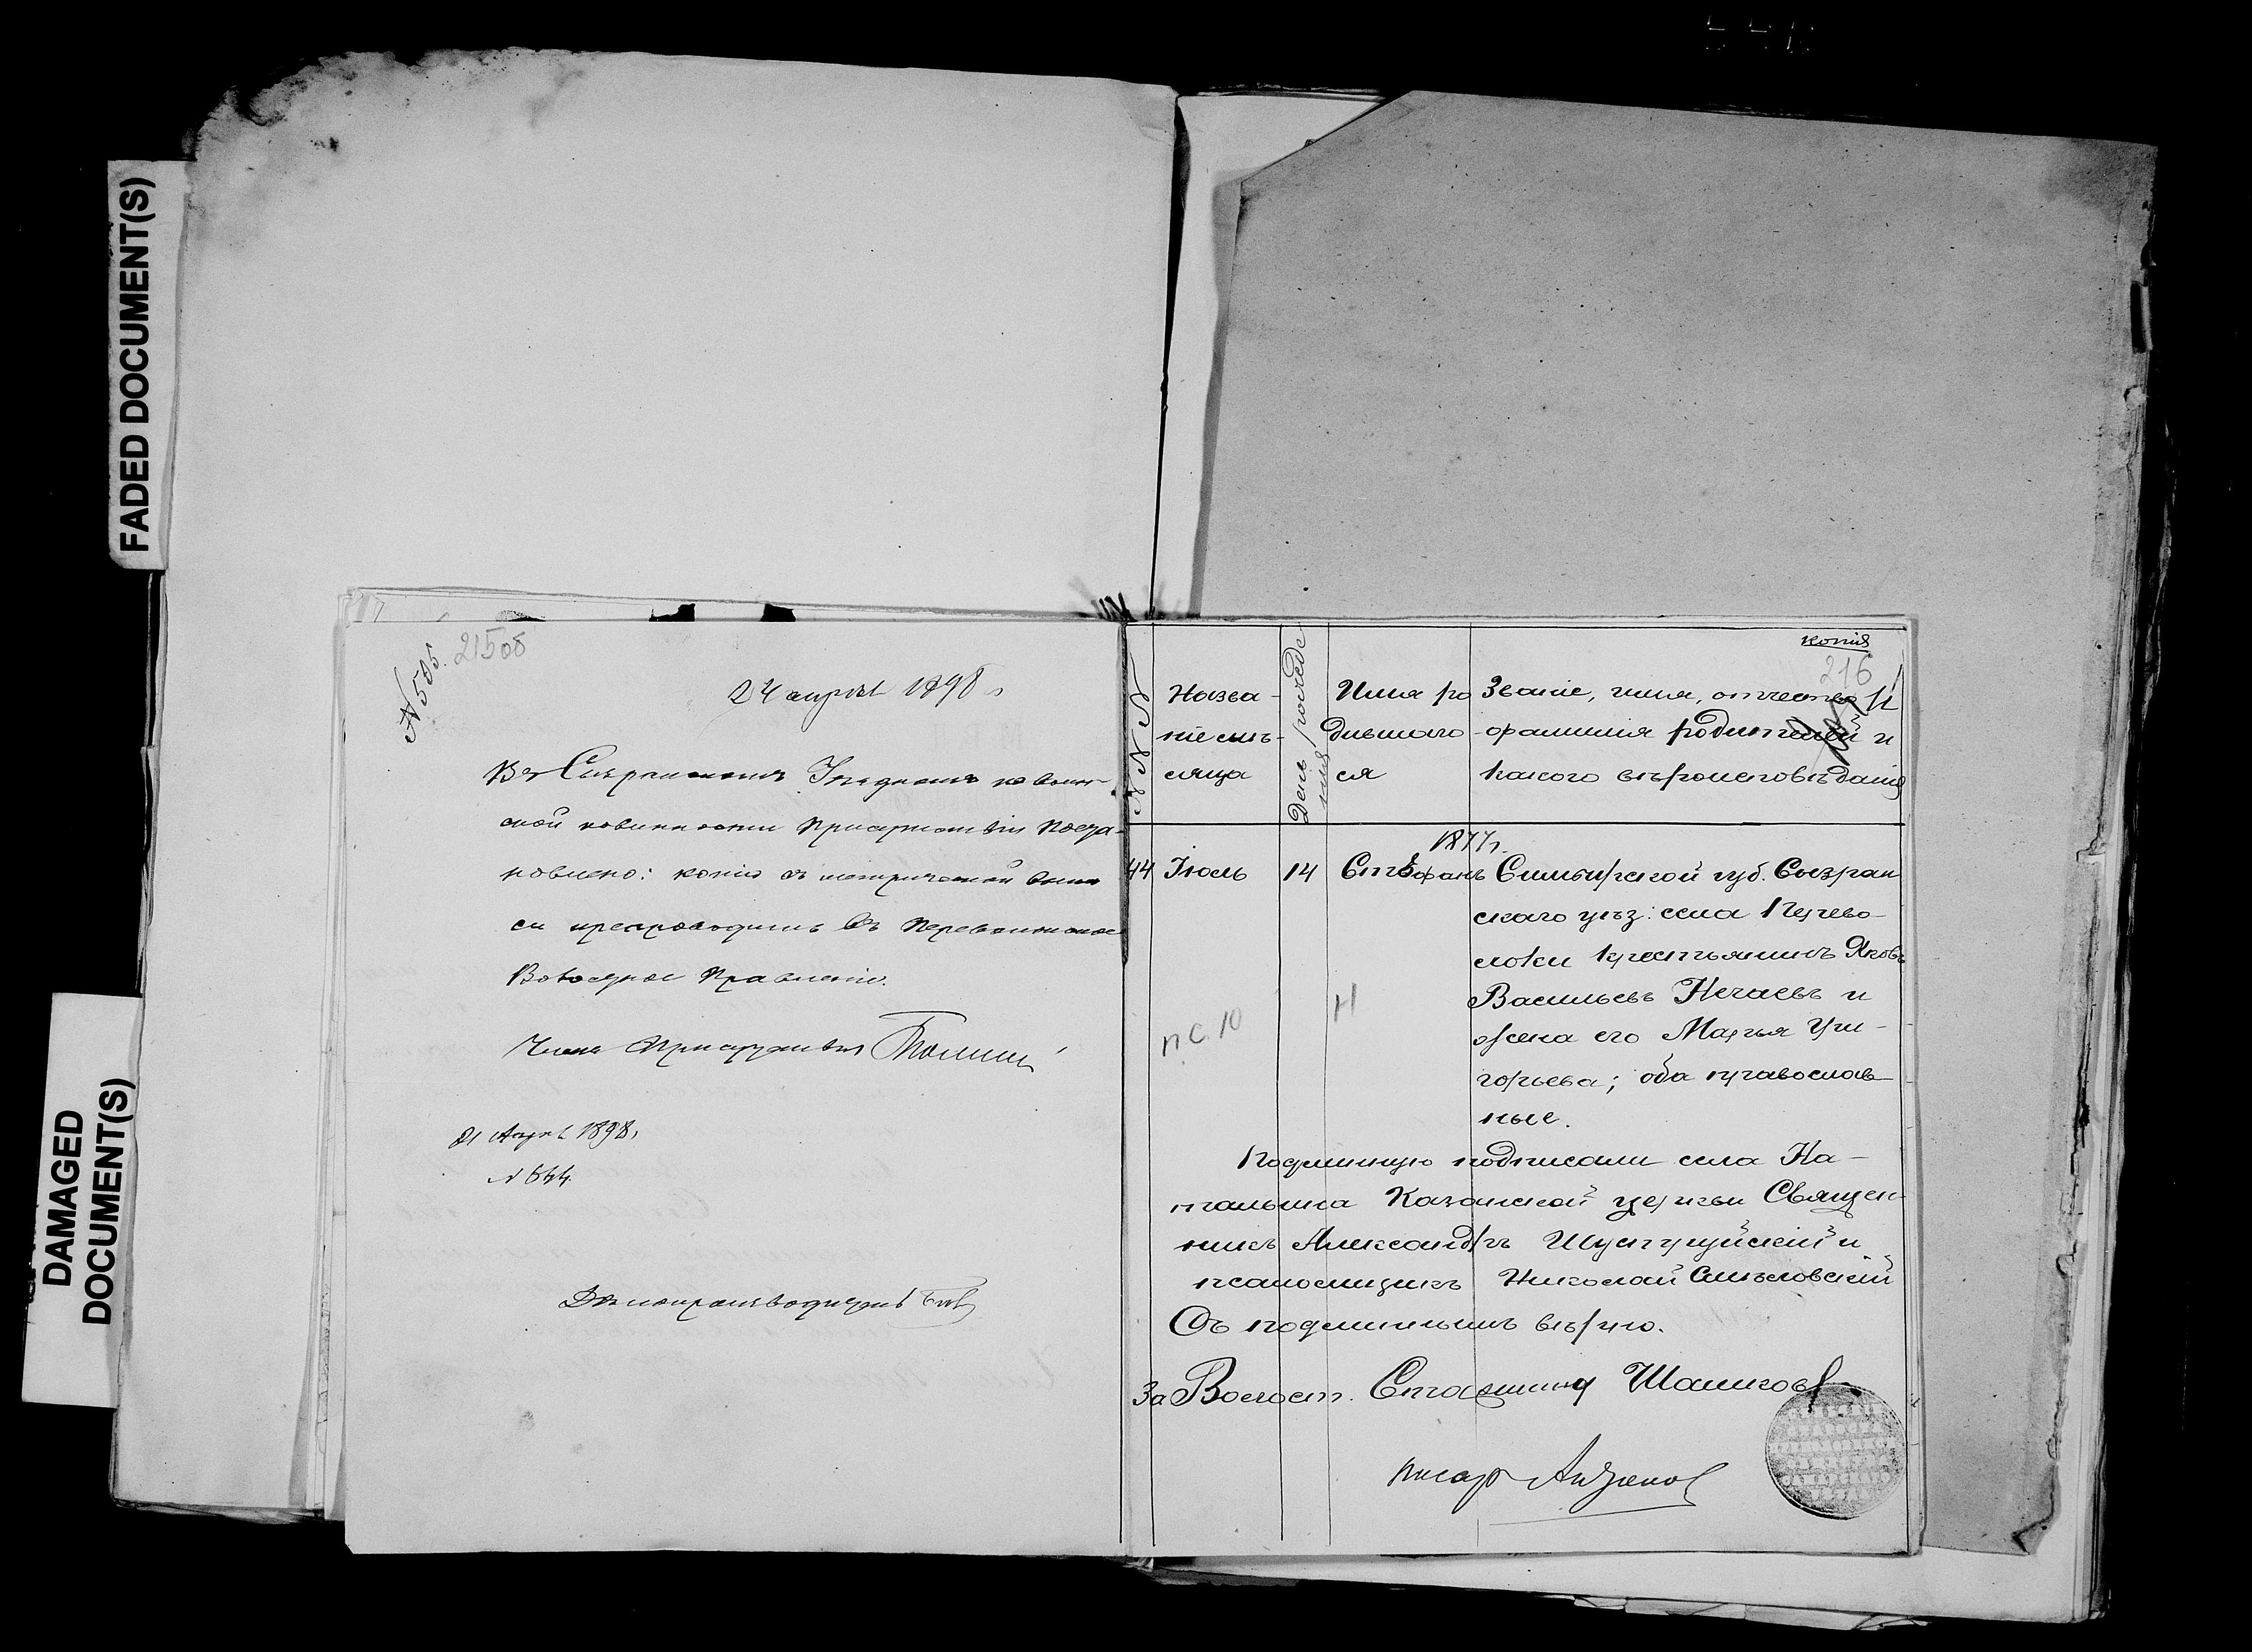 FADED DOCUMENT(S)
DAMAGED
DOCUMENT(S)
№ 505.
21508
24 апрѣл 1898 г
Въ Сызранскомъ Уѣздномъ по воин-
ской повинности Присутствіи поста-
новлено: копію съ метрической выпи
си препроводить въ Переволокское
Волостное Правленіе.
Членъ Присутствія
21 Апрѣл 1898 г
№ 644.
Дѣлопроизводитель
копія
216
№ №
Назва-
ніе мѣ-
сяца
День рожде
нія
Имя ро
дившаго-
ся
Званіе, имя, отчество и
фамилія родителей и
какого вѣроисповѣданія
1877 г.
44 Іюль 14 Стефанъ Симбирской губ. Сызран
скаго уѣз: села Перево-
локи крестьянинъ Яковъ
Васильевъ Нечаевъ и
жена его Марья Гри-
горьева; оба православ-
ные.
п с. 10
Н
Подлинную подписали села На-
тальина Казанской церкви Священ-
никъ Александръ и
псаломщикъ Николай Смѣловскій
Съ подлиннымъ вѣрно.
За Волост. Старшину Шашковъ
Писарь